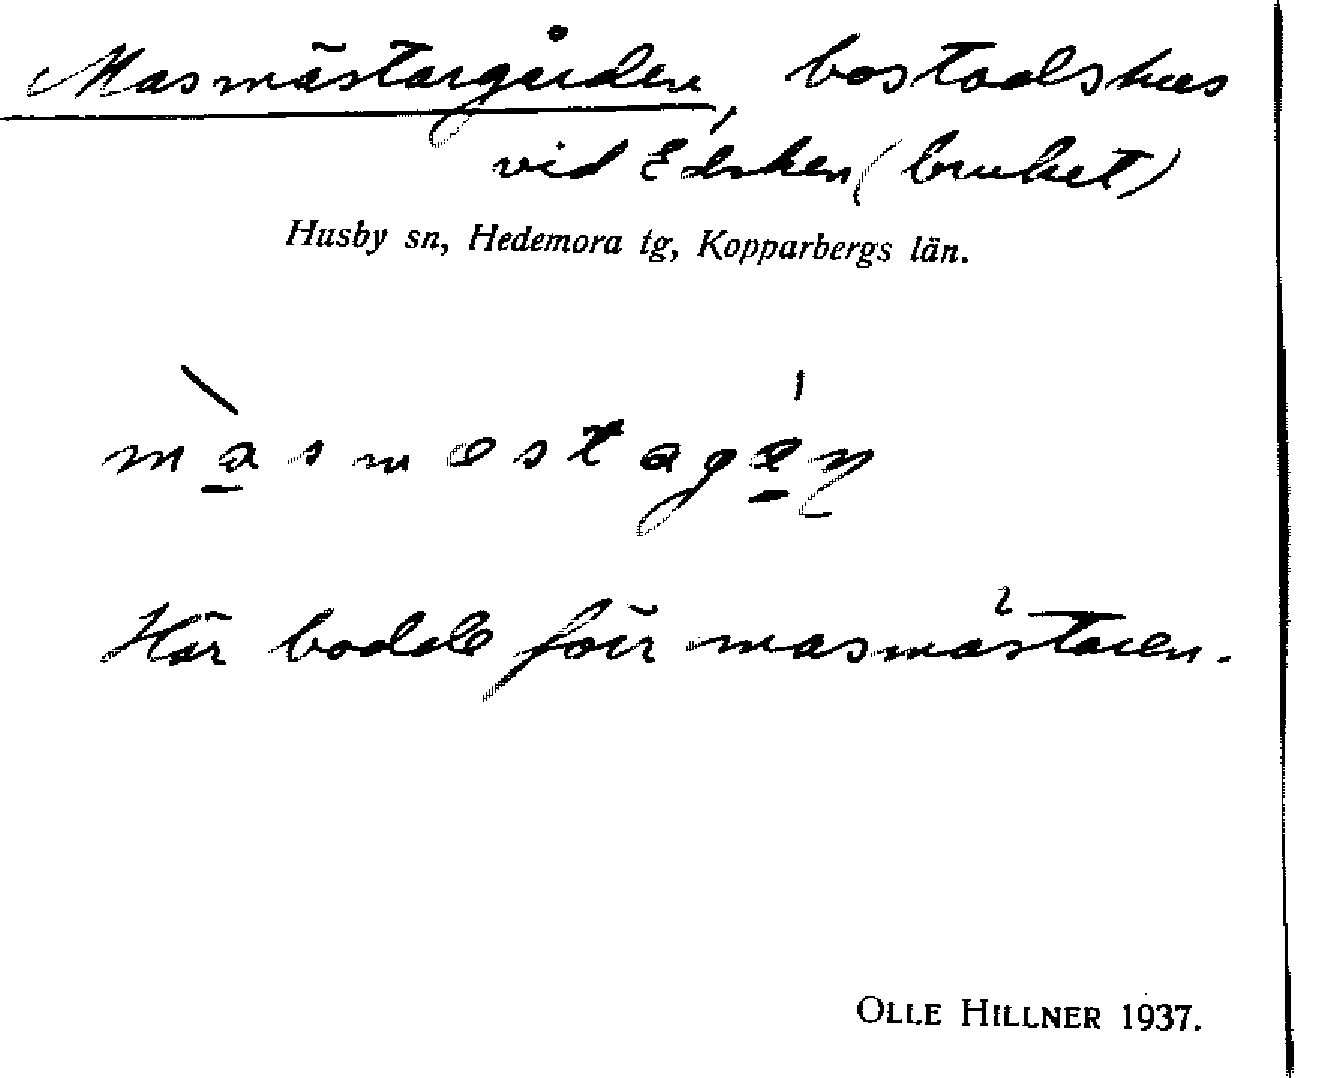 Masmästargården, bostadshus
vid Edsken (bruket)
Husby sn, Hedemora tg, Kopparbergs län.
màsmestagán
Här bodde förr masmästaren.
OLLE HILLNER 1937.